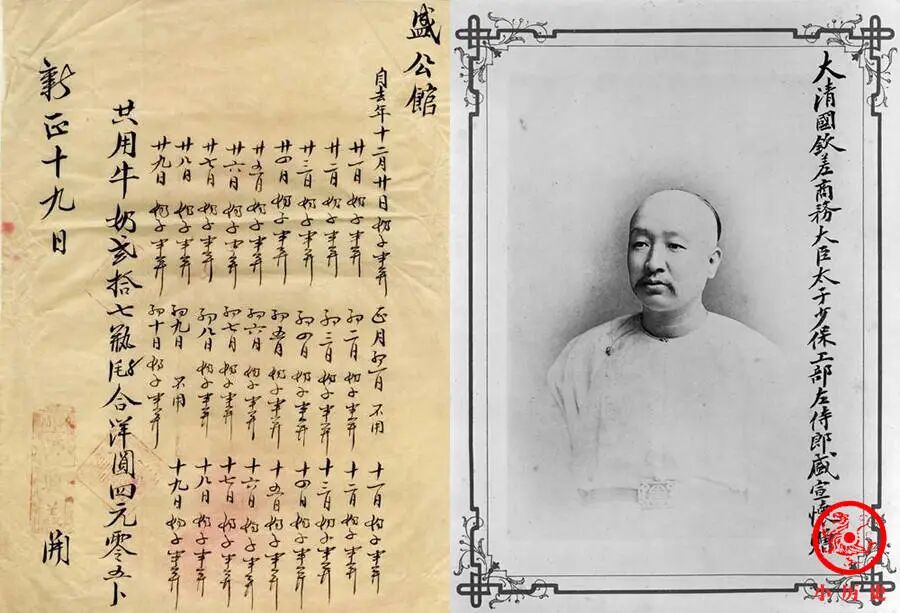 盛公館
自去年十二月廿日奶子半并
廿一日奶子半并
廿二日奶子半并
廿三日奶子半并
廿四日奶子半并
廿五日奶子半并
廿六日奶子半并
廿七日奶子半并
廿八日奶子半并
廿九日奶子半并
正月初一日不用
初二日奶子半并
初三日奶子半并
初四日奶子半并
初五日奶子半并
初六日奶子半并
初七日奶子半并
初八日奶子半并
初九日不用
初十日奶子半并
十一日奶子半并
十二日奶子半并
十三日奶子半并
十四日奶子半并
十五日奶子半并
十六日奶子半并
十七日奶子半并
十八日奶子半并
十九日奶子半并
共用牛奶弍拾七瓶合洋圓四元零五卜
新正十九日 開
大清國欽差商務大臣太子少保工部左侍郎盛宣懷
小历史